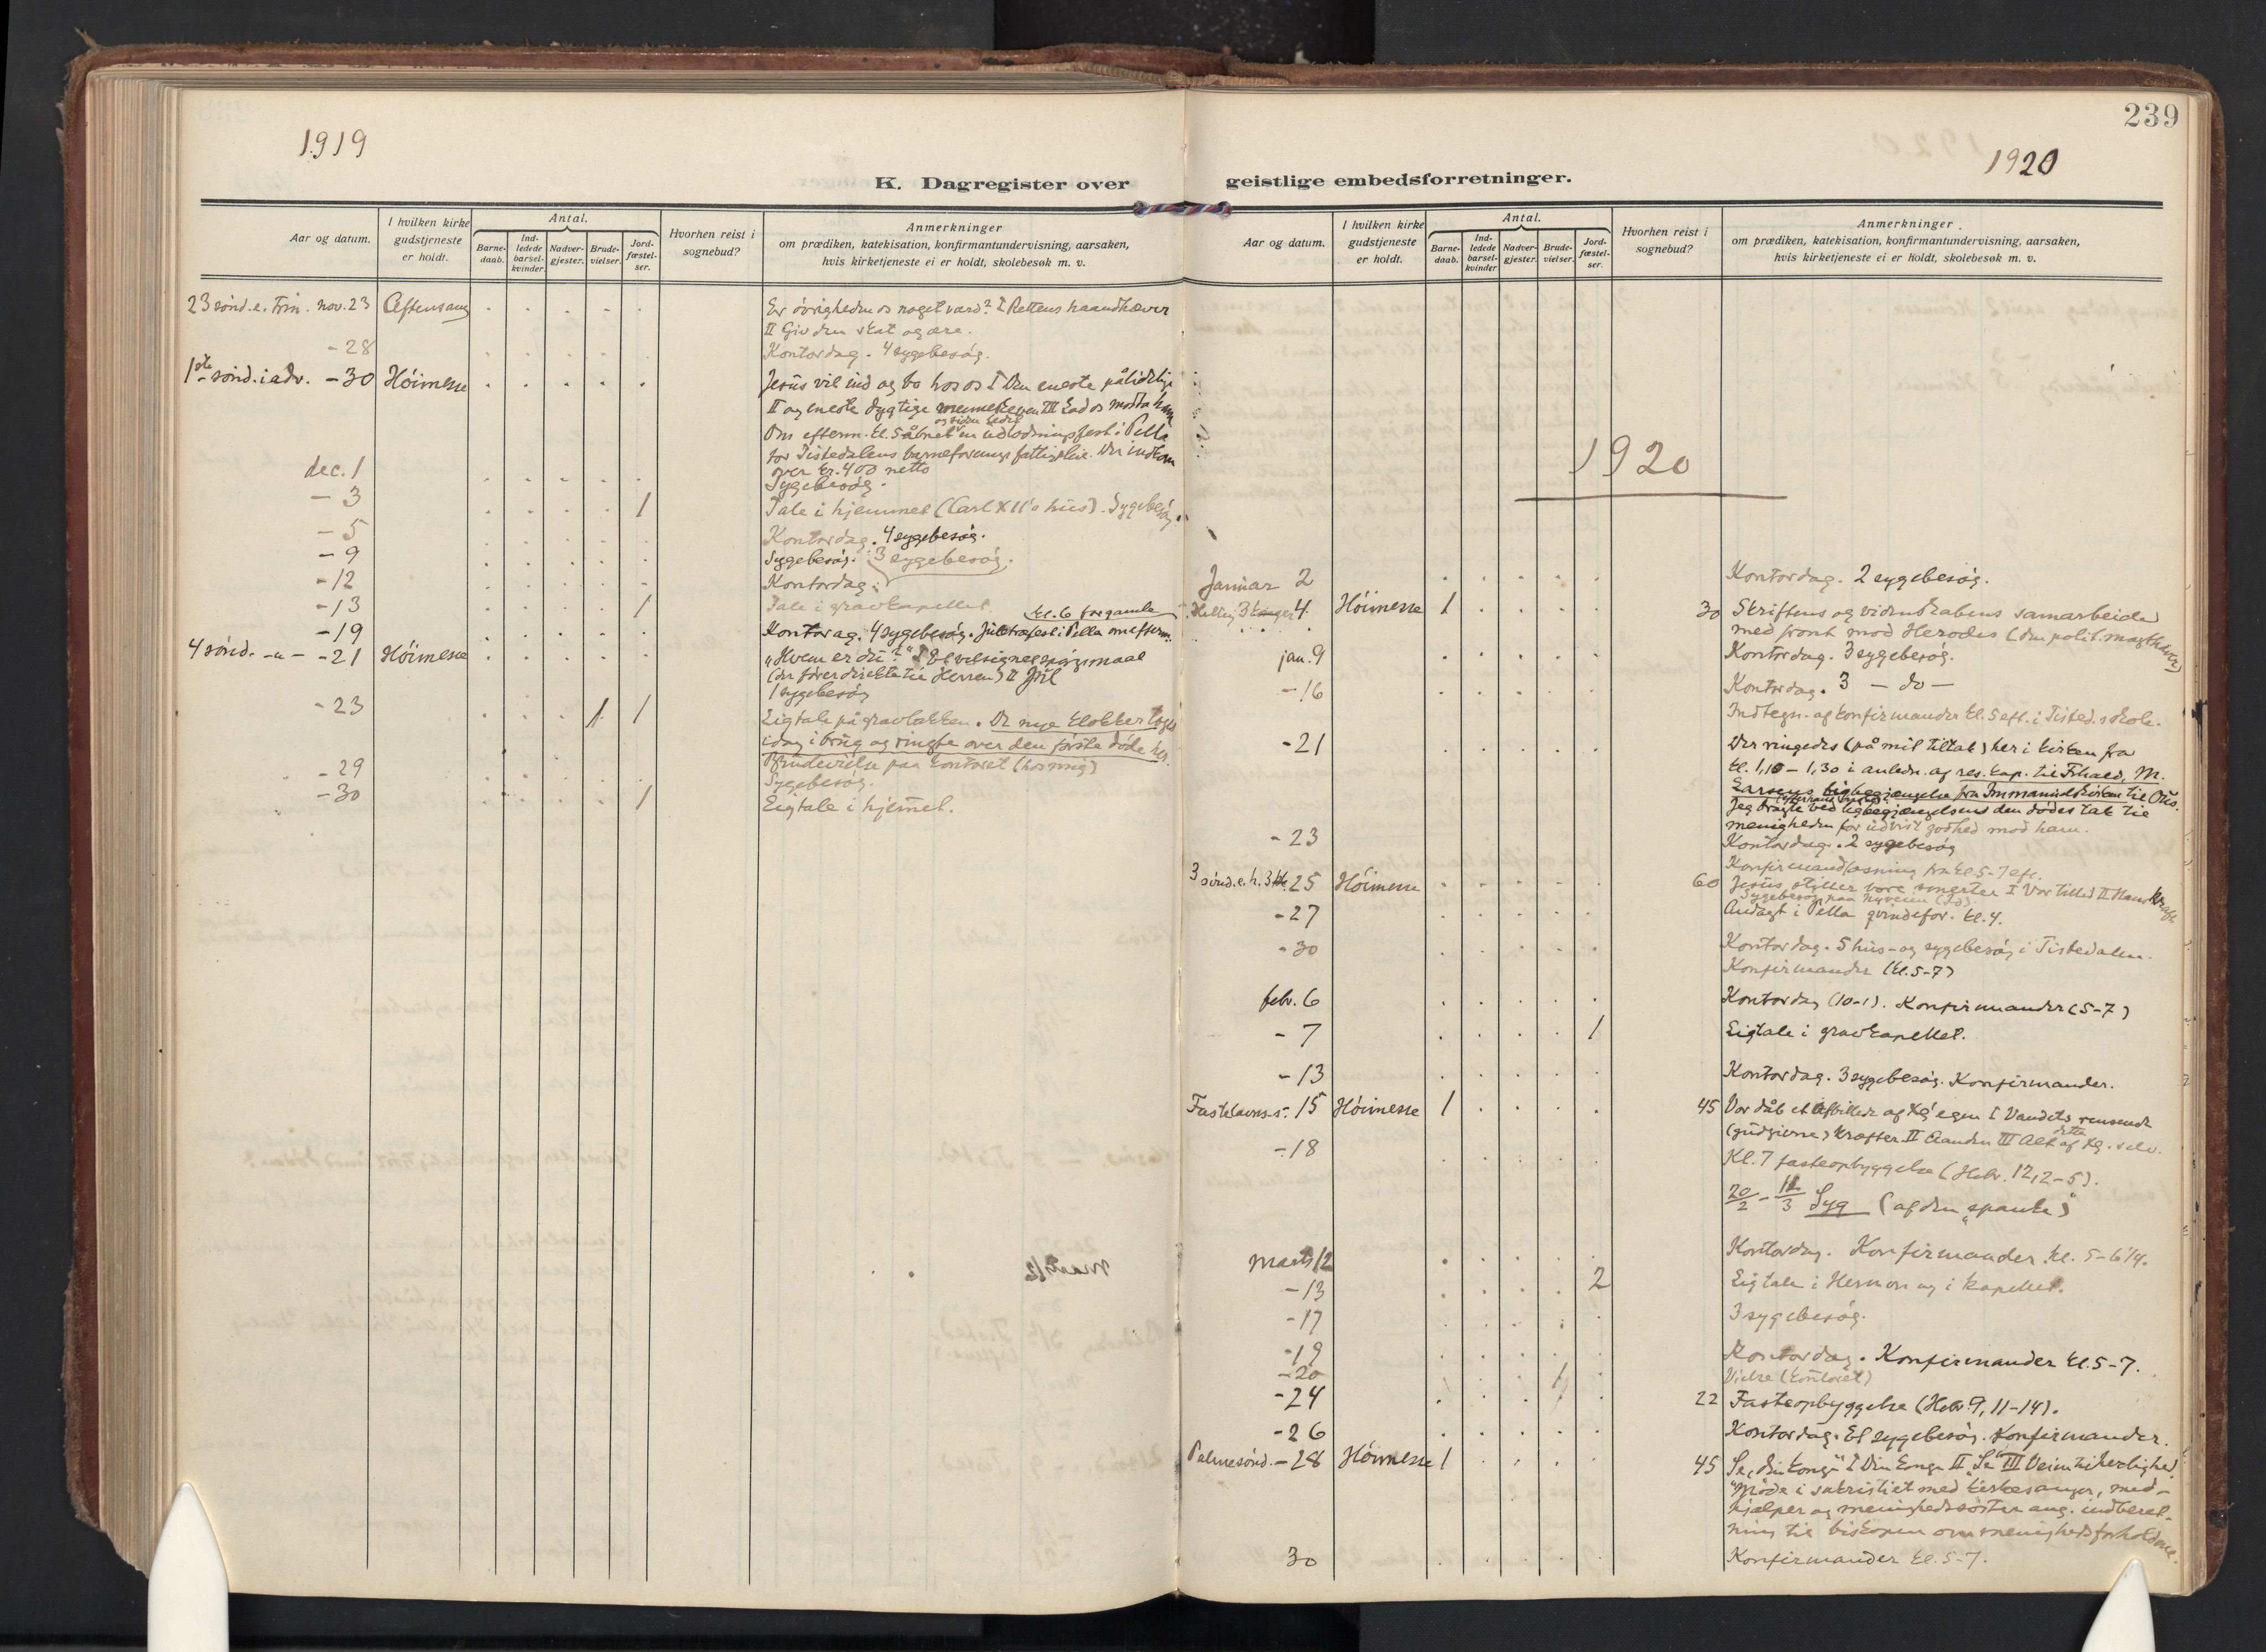 239
1919
1920
K. Dagregister over geistlige embedsforretninger.
Aar og datum.
I hvilken kirke gudstjeneste er holdt.
Antal.
Barne-daab.
Ind-ledede barsel-kvinder.
Nadver-gjester.
Brude-vielser.
Jord-fæstel-ser.
Hvorhen reist i sognebud?
Anmerkninger
om prædiken, katekisation, konfirmantundervisning, aarsaken,
hvis kirketjeneste ei er holdt, skolebesøk m. v.
23 sönd. e. Trin. nov. 23 Aftensang Er övrigheden os noget værd? I Rettens haandhæver
II Giv den skat og ære.
- 28 Kontordag. 4 sygebesög.
1ste sönd. i adv. - 30 Höimesse Jesus vil ind og bo hos os I Den eneste pålidelige
II og eneste dygtige menneskeven III Lad os modta ham
Om efterm. kl. 5 åbnet en udlodningsfest i Pella
for Tistedalens barneforenings fattigpleie. Der indkom
over kr. 400 netto
dec. 1 Sygebesög.
- 3 1 Tale i hjemmet (Carl XII's hus). Sygebesög.
- 5 Kontordag. 4 sygebesög.
- 9 Sygebesög. 3 sygebesög.
- 12 Kontordag.
- 13 1 Tale i gravkapellet. kl. 6 for gamle
- 19 Kontordag. 4 sygebesög. Juletræfest i Pella om efterm.
4 sönd. -"- - 21 Höimesse "Hvem er du?" I Et velsignet spörgsmaal
(der förer direkte til Herren) II Jul
1 sygebesög
- 23 1 1 Ligtale på gravbakken. De nye klokker toges
idag i brug og ringte over den förste döde her.
Brudevielse paa kontoret (hos mig)
- 29 Sygebesög.
- 30 1 Ligtale i hjemmet.
Aar og datum.
I hvilken kirke gudstjeneste er holdt.
Antal.
Barne-daab.
Ind-ledede barsel-kvinder
Nadver-gjester.
Brude-vielser.
Jord-fæstel-ser.
Hvorhen reist i sognebud?
Anmerkninger.
om prædiken, katekisation, konfirmantundervisning, aarsaken,
hvis kirketjeneste ei er holdt, skolebesøk m. v.
1920
Januar 2 Kontordag. 2 sygebesög.
Hellig 3 konger 4. Höimesse 1 30 Skriftens og videnskabens samarbeide
med front mod Herodes (den polit. magthaver)
jan. 9 Kontordag. 3 sygebesög.
- 16 Kontordag. 3 - do -
Indtegn. af konfirmander kl. 5 eft. i Tisted. skole.
- 21 Der ringedes (på mit tiltak) her i kirken fra
kl. 1,10 - 1,30 i anledn. af res. kap. til Frhald, M.
Larsens ligbegjængelse fra Immanuelskirken til Os.
Jeg bragte ved ligbegjængelsen den dödes tak til
menigheden for udvist godhed mod ham.
- 23 Kontordag. 2 sygebesög
Konfirmandlæsning fra kl. 5-7 eft.
3 sönd. e. h. 3 k. 25 Höimesse 60 Jesus stiller vore smerter I Vor tillid II Hans kraft
- 27 Andagt i Pella qvindefor. kl. 4.
- 30 Kontordag. 5 hus- og sygebesög i Tistedalen.
Konfirmander (kl. 5-7)
febr. 6 Kontordag (10-1). Konfirmander (5-7)
- 7 1 Ligtale i gravkapellet.
- 13 Kontordag. 3 sygebesög. Konfirmander.
Fastelavns-s. 15 Höimesse 1 45 Vor dåb et afbillede af Xti egen I Vandets rensende
(gudgivne) kræfter II Aanden III Alt dette af Xti selv.
- 18 Kl. 7 fasteopbyggelse (Hebr. 12,2-5).
20/2 - 11/3 Syg (af den "spanske")
Marts 12 Kontordag. Konfirmander kl. 5-6 1/4.
- 13 2 Ligtale i Hermon og i kapellet.
- 17 3 sygebesög.
- 19 Kontordag. Konfirmander kl. 5-7.
- 20 1 Vielse (kontoret)
- 24 22 Fasteopbyggelse (Hebr. 9, 11-14).
- 26 Kontordag. Et sygebesög. Konfirmander.
Palmesönd. - 28 Höimesse 1 45 "Se, din konge" I Din konge II "Se" III Veien til herlighed.
Möde i sakristiet med kirkesanger, med-
hjælper og menighedssöster ang. indberet-
ning til biskopen om menighedsforholdene.
30 Konfirmander kl. 5-7.